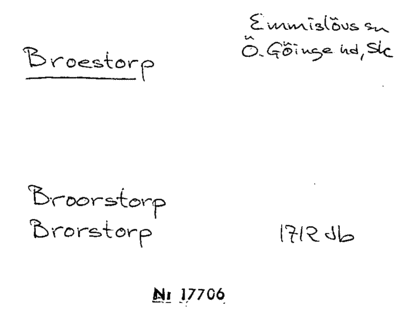 Broestorp
Emmislövs sn
Ö. Göinge hd, Sk
Broorstorp
Brorstorp 1712 db
Nr 17706